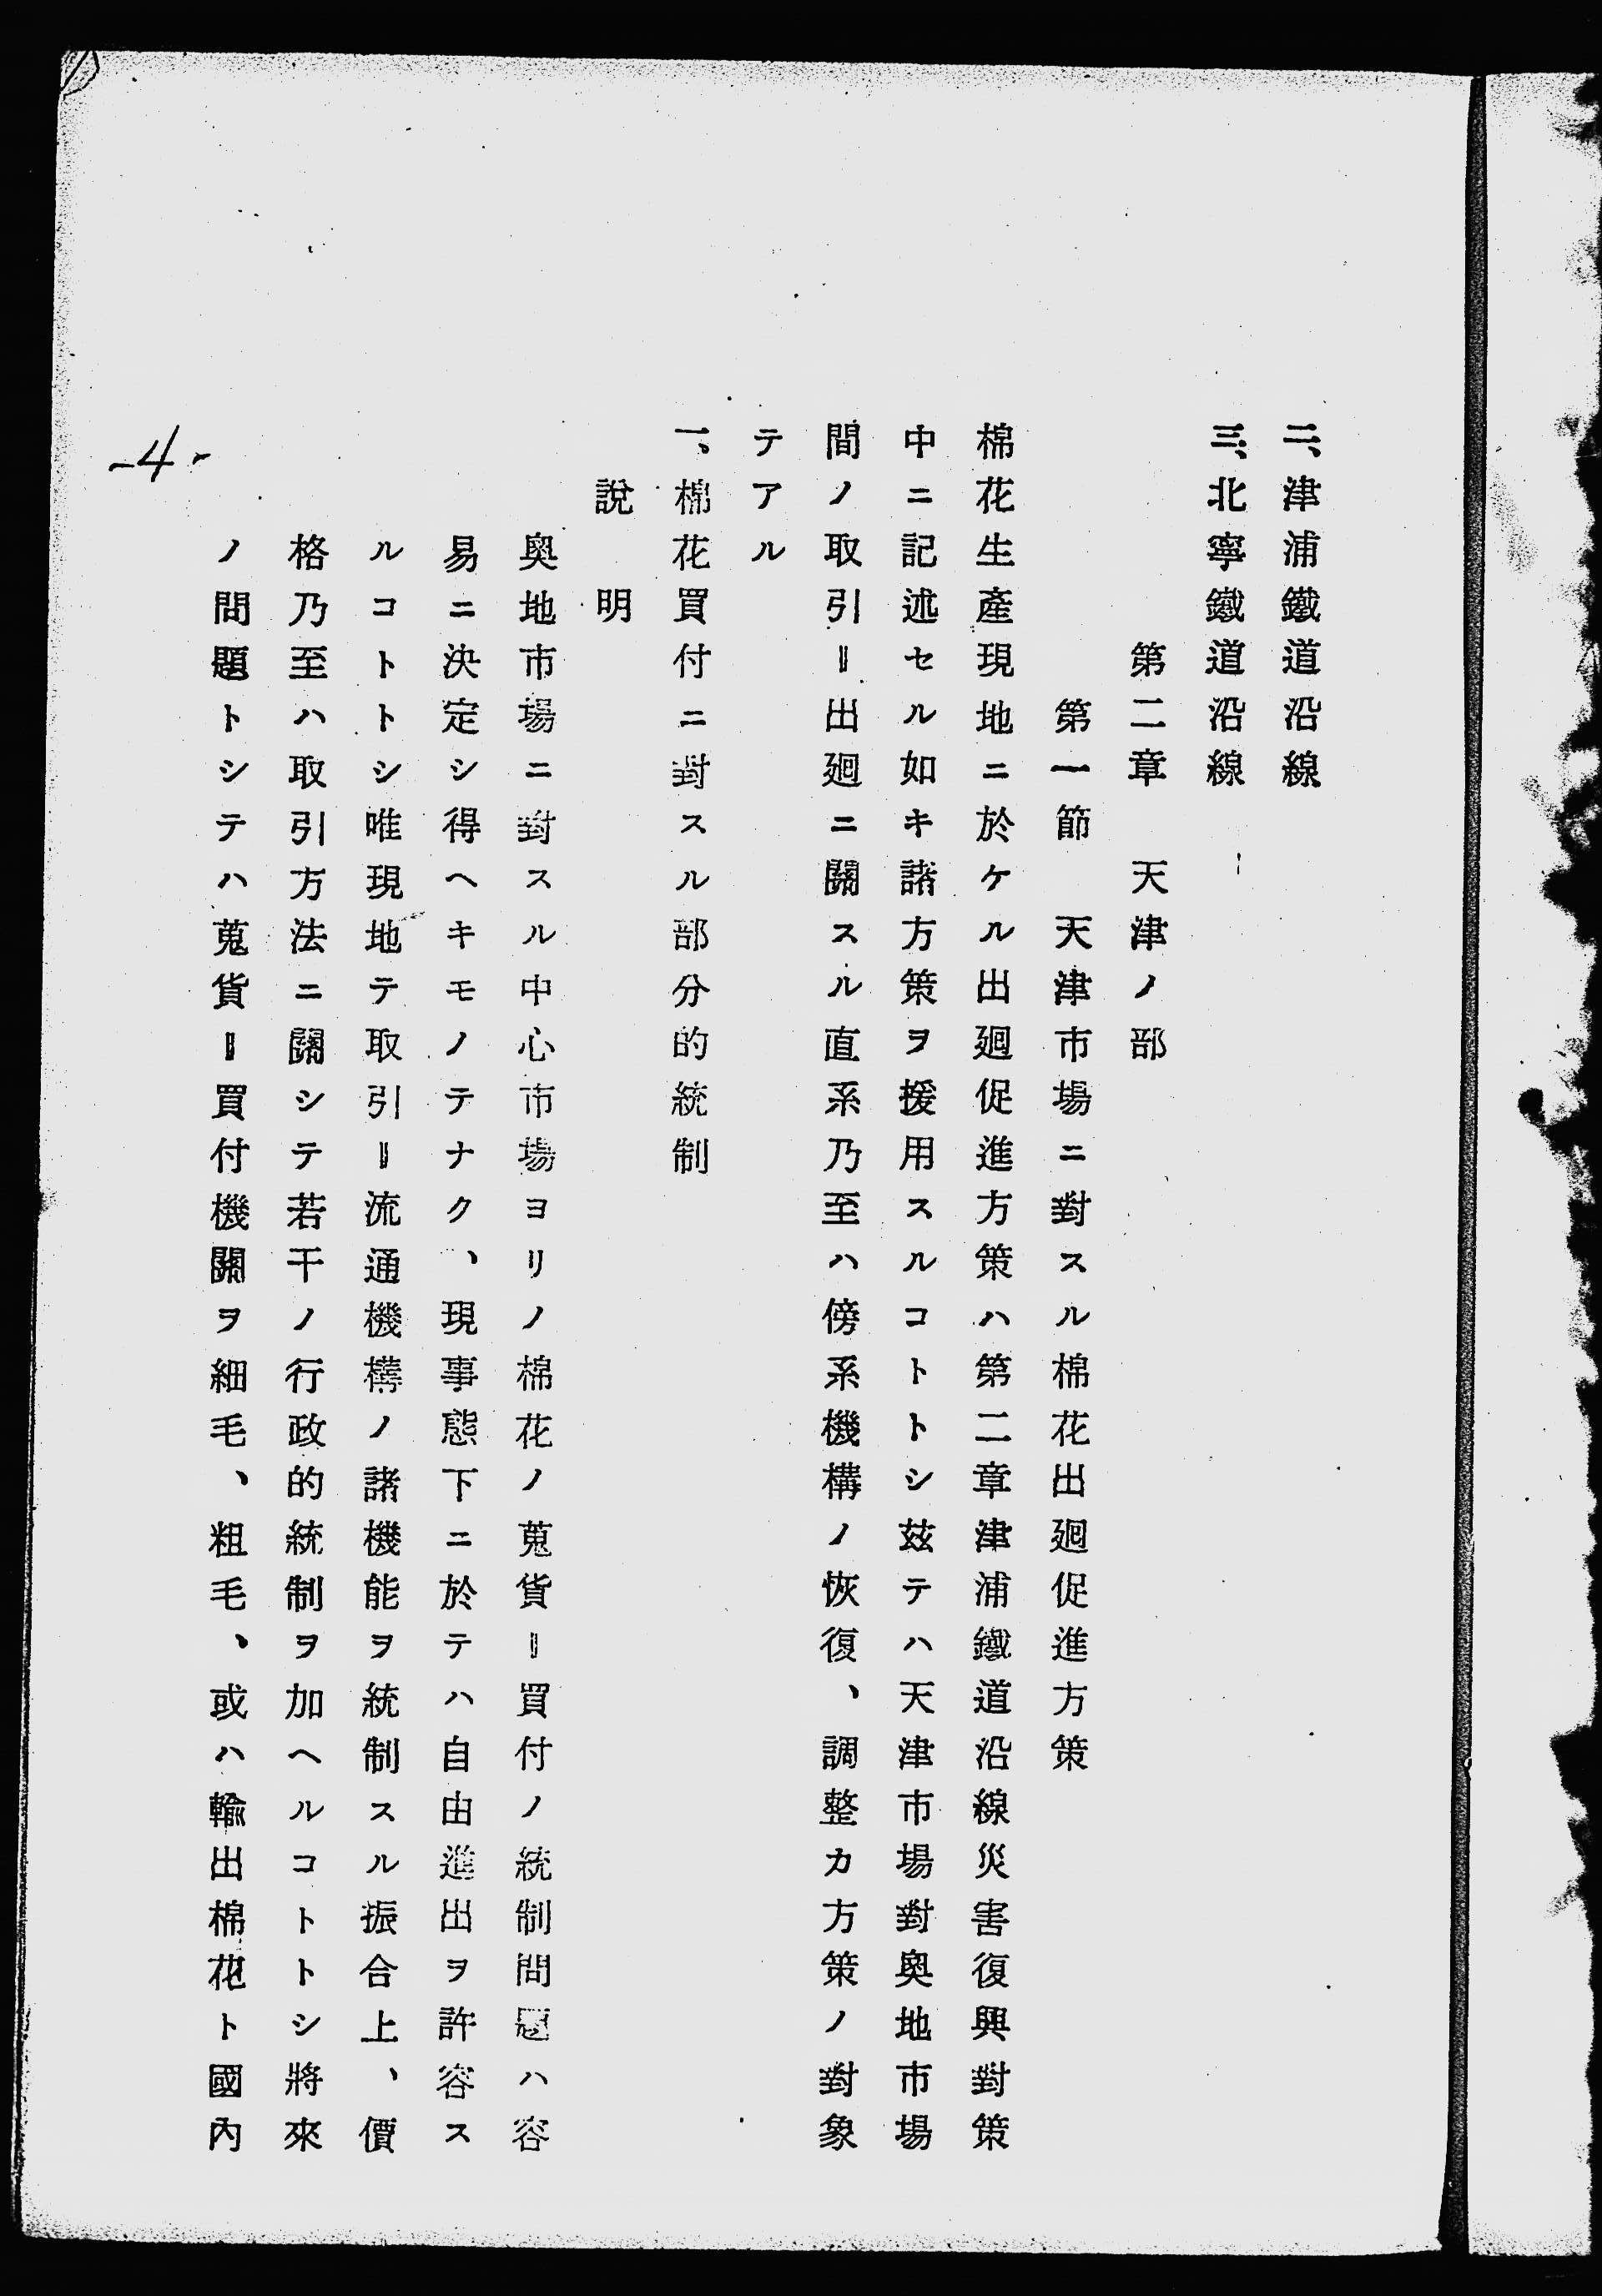 二、津浦鐵道沿線
三、北寧鐵道沿線
第二章　天津ノ部
第一節　天津市場ニ對スル棉花出廻促進方策
棉花生產現地ニ於ケル出廻促進方策ハ第二章津浦鐵道沿線災害復興對策
中ニ記述セル如キ諸方策ヲ援用スルコトトシ茲テハ天津市場對奧地市場
間ノ取引＝出廻ニ關スル直系乃至ハ傍系機構ノ恢復、調整カ方策ノ對象
テアル
一、棉花買付ニ對スル部分的統制
說　明
奧地市場ニ對スル中心市場ヨリノ棉花ノ蒐貨＝買付ノ統制問題ハ容
易ニ決定シ得ヘキモノテナク、現事態下ニ於テハ自由進出ヲ許容ス
ルコトトシ唯現地テ取引＝流通機構ノ諸機能ヲ統制スル振合上、價
格乃至ハ取引方法ニ關シテ若干ノ行政的統制ヲ加ヘルコトトシ將來
ノ問題トシテハ蒐貨＝買付機關ヲ細毛、粗毛、或ハ輸出棉花ト國內
-4-